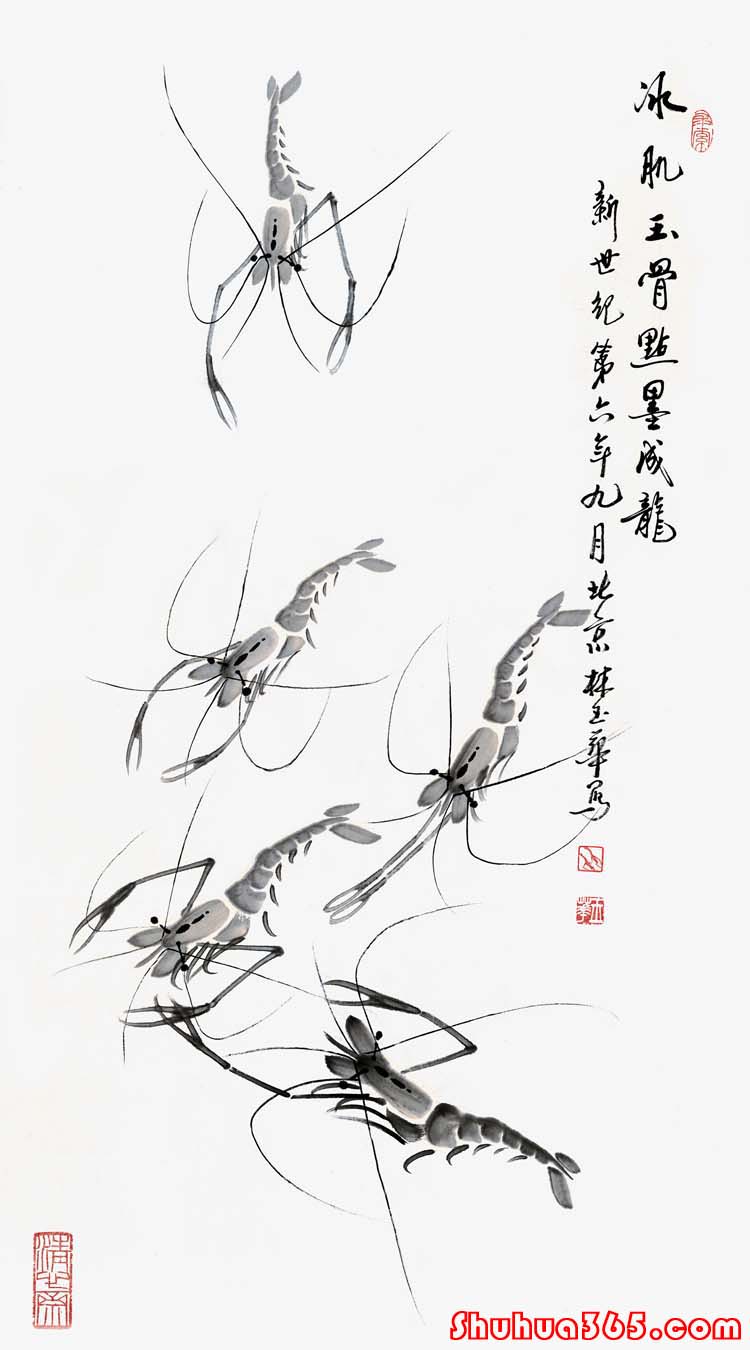 冰肌玉骨點墨成龍
新世纪第六年九月北京林玉华写
Shuhua365.com